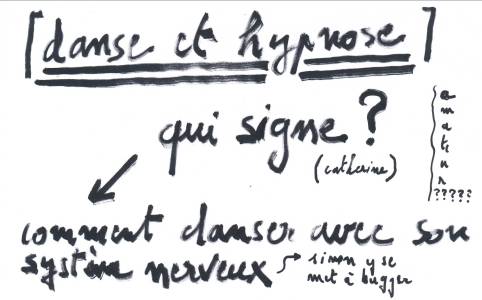 [danse et hypnose]
qui signe ?
(catherine)
amateur
?????
comment danser avec son
système nerveux
→ sinon y se
met à bugger